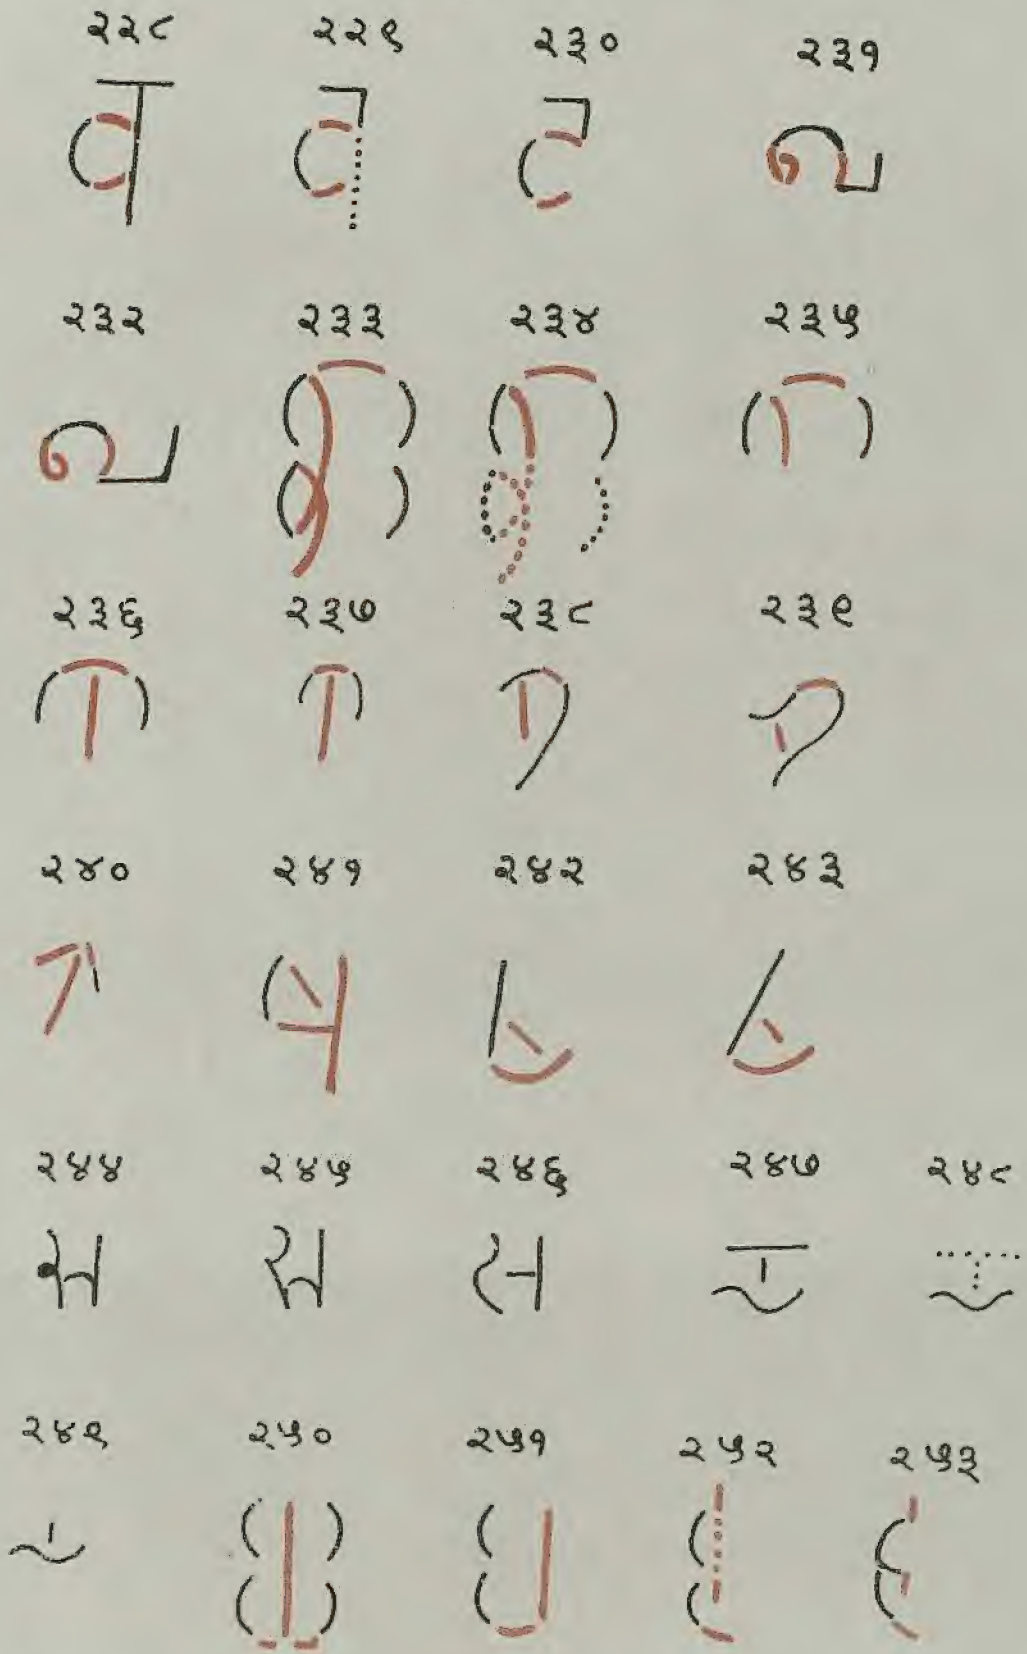 २२८ २२९ २३० २३१
२३२ २३३ २३४ २३५
२३६ २३७ २३८ २३९
२४० २४१ २४२ २४३
२४४ २४५ २४६ २४७ २४८
२४९ २५० २५१ २५२ २५३